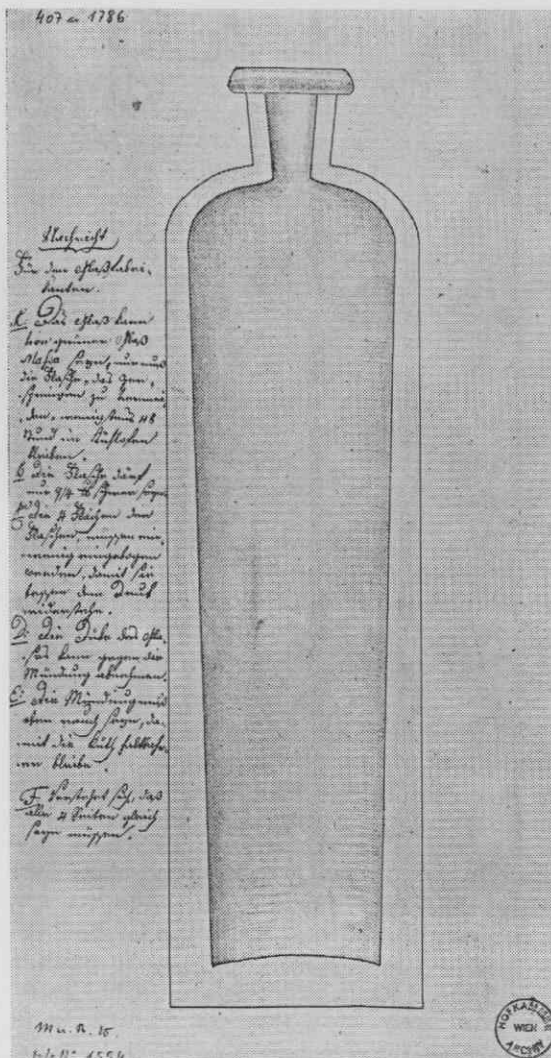 407 ex 1786
Nachricht
Für den Glaßfabri-
kanten.
A. Das Glaß kann
von grüner Glaß
Massa seyn, nur muß
die Flasche, das Zer-
springen zu vermei-
den, wenigstens 48
Stund im Kühlofen
bleiben.
die Flasche darf
nur 9/4 ℔ schwer seyn
die 4 Flächen der
Flaschen, müssen ein
wenig eingebogen
werden, damit sie
besser dem Druck
widerstehe.
D: die Dicke des Gla-
ses kann gegen die
Mündung abnehmen.
E: die Mündung muß
eben rauch seyn, da-
mit die
bleibe.
F. Versteht sich, daß
alle 4 Seiten gleich
seyn müssen.
HOFKAMMER
WIEN
ARCHIV